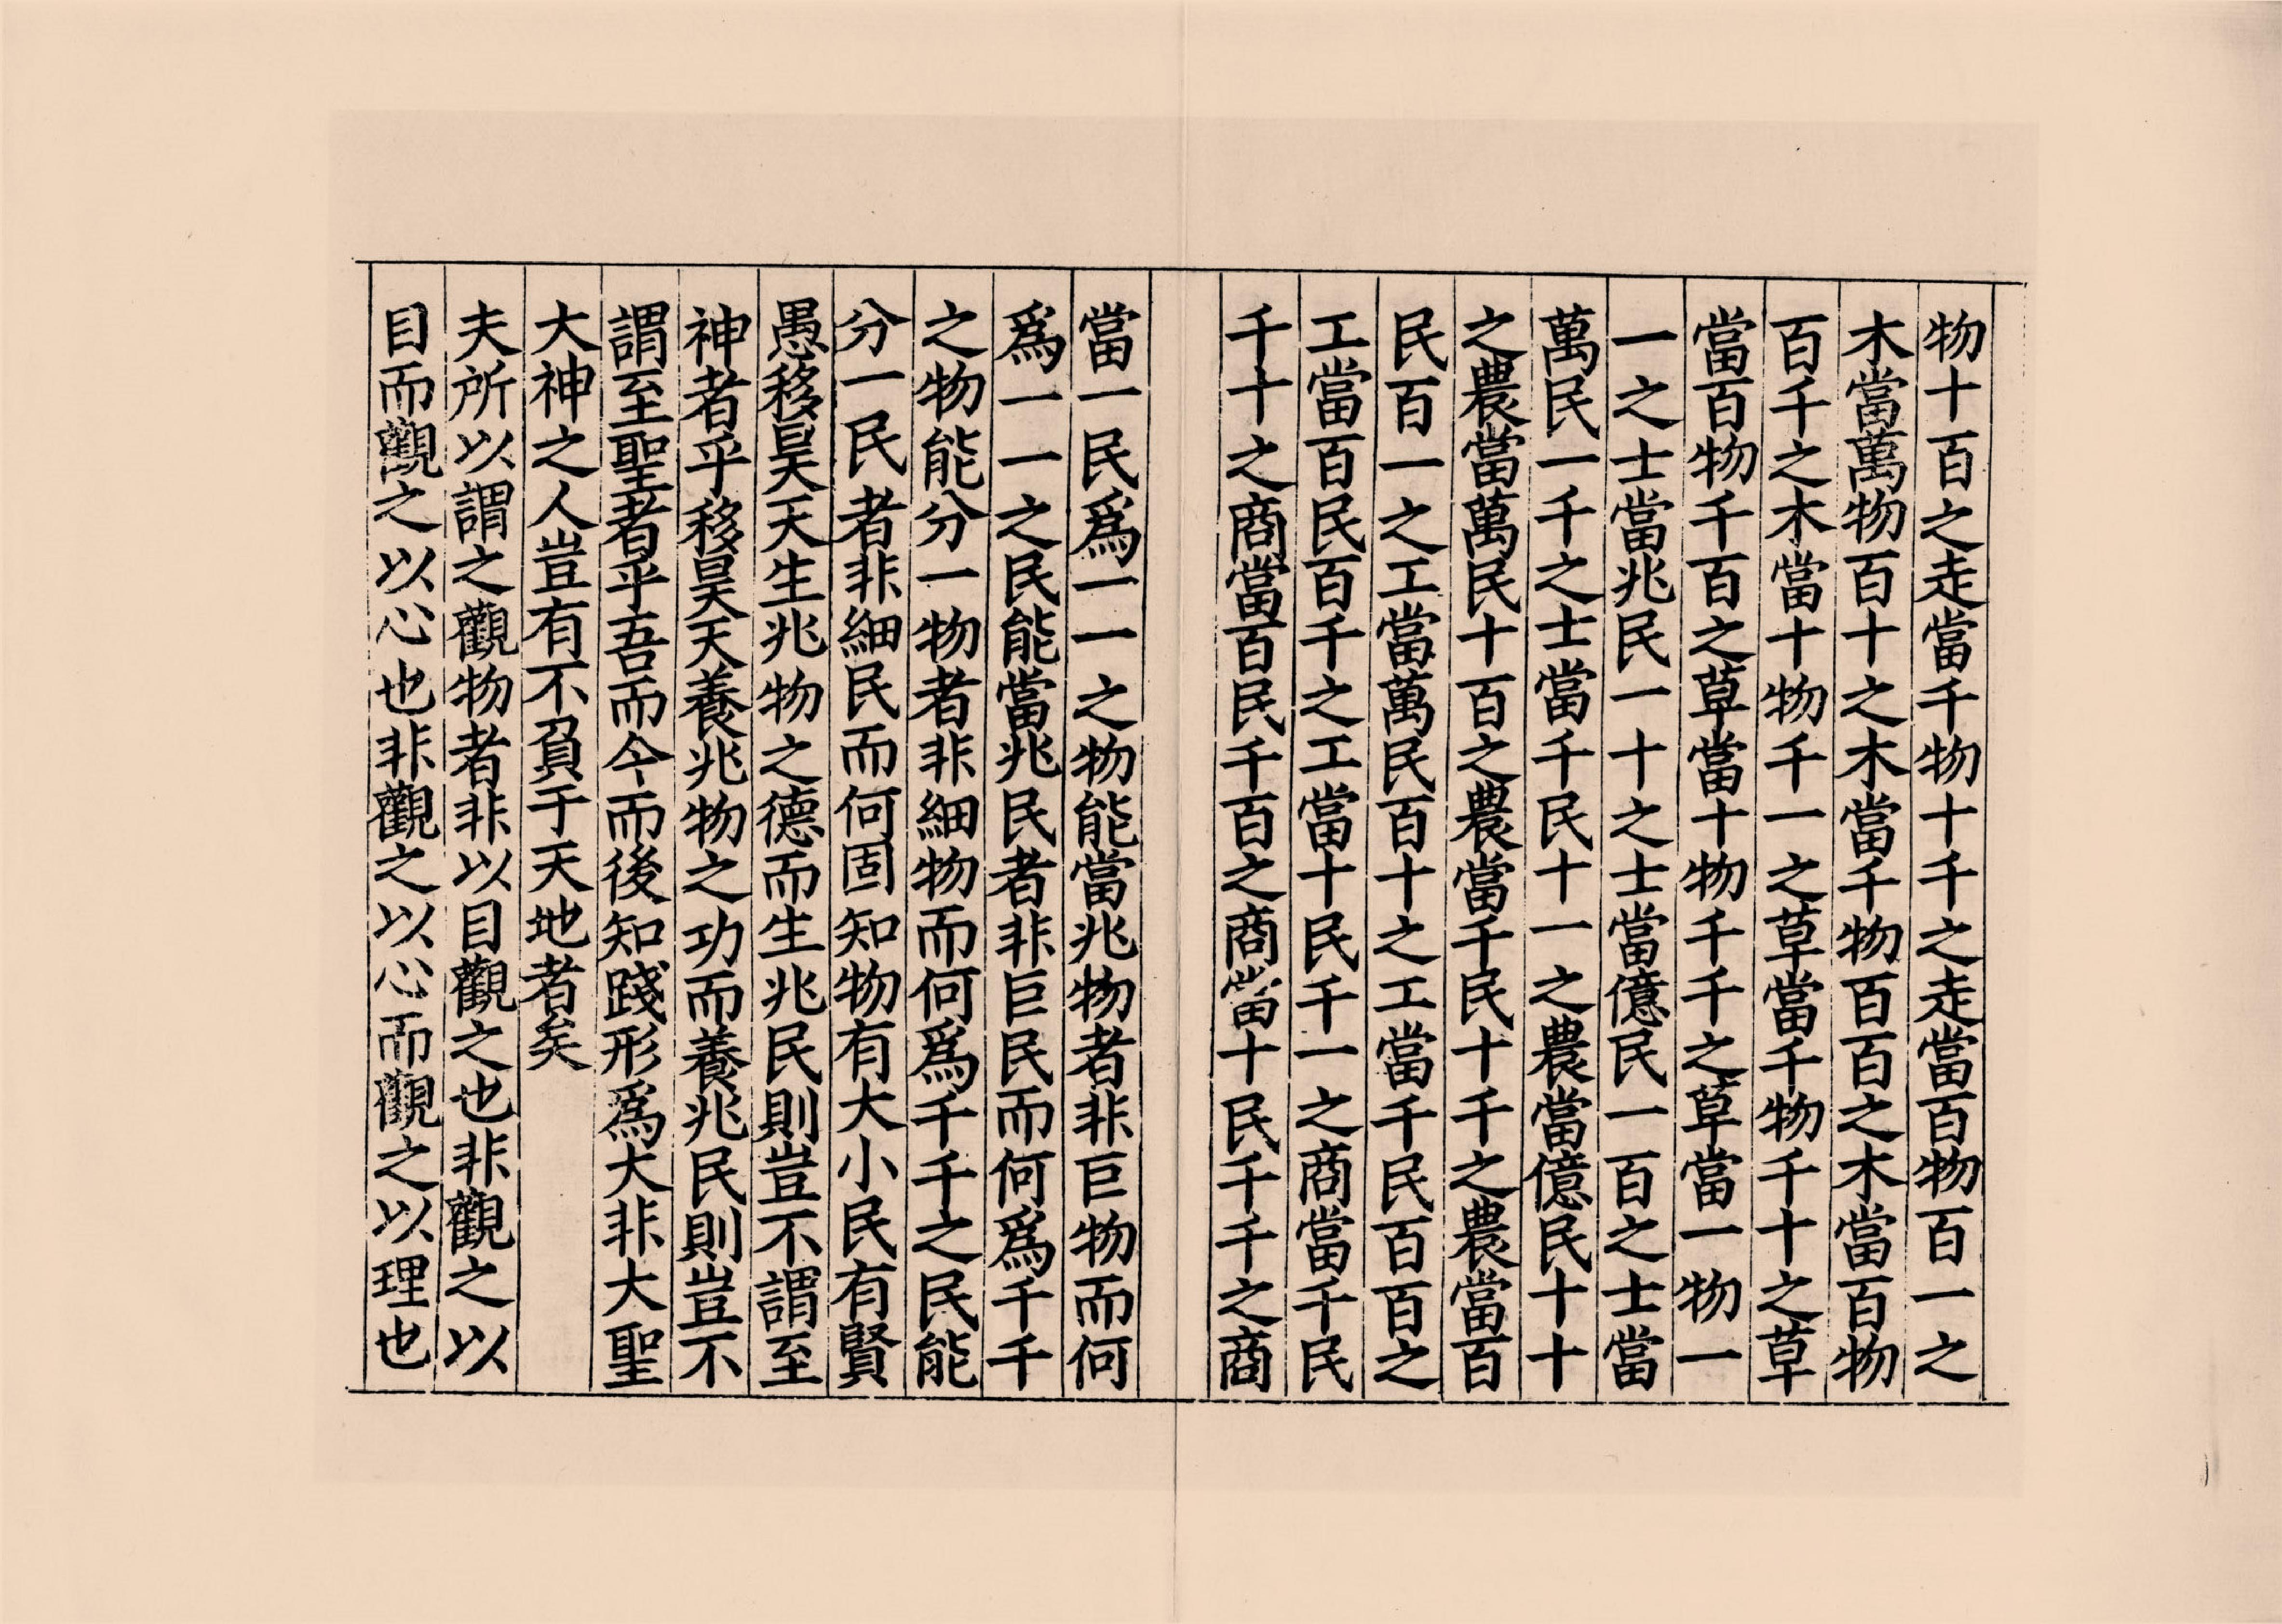 物十百之走當千物十千之走當百物百一之
木當萬物百十之木當千物百百之木當百物
百千之木當十物千一之草當千物千十之草
當百物千百之草當十物千千之草當一物一
一之士當兆民一十之士當億民一百之士當
萬民一千之士當千民十一之農當億民十十
之農當萬民十百之農當千民十千之農當百
民百一之工當萬民百十之工當千民百百之
工當百民百千之工當十民千一之商當千民
千十之商當百民千百之商當十民千千之商
當一民爲一一之物能當兆物者非巨物而何
爲一一之民能當兆民者非巨民而何爲千千
之物能分一物者非細物而何爲千千之民能
分一民者非細民而何固知物有大小民有賢
愚移昊天生兆物之德而生兆民則豈不謂至
神者乎移昊天養兆物之功而養兆民則豈不
謂至聖者乎吾而今而後知踐形爲大非大聖
大神之人豈有不負于天地者矣
夫所以謂之觀物者非以目觀之也非觀之以
目而觀之以心也非觀之以心而觀之以理也